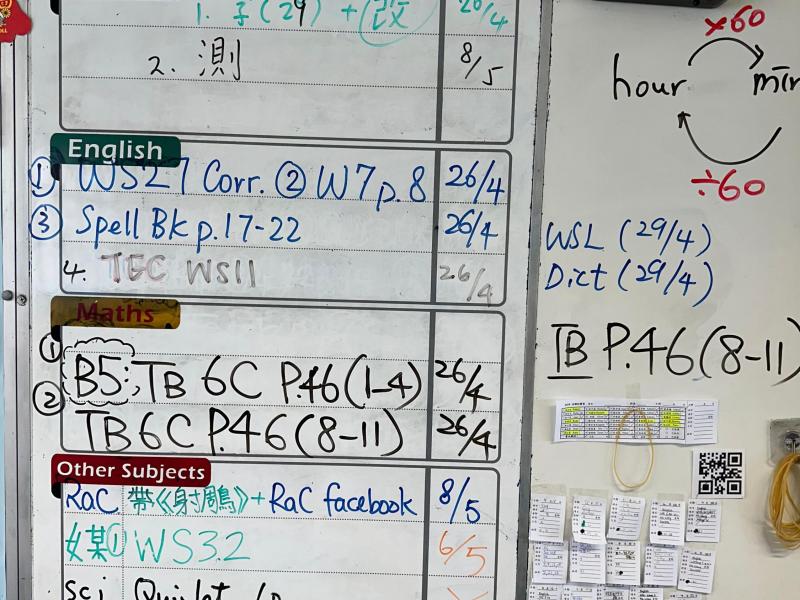 1. 子(29) + 改 26/4
2. 測 8/5
English
① WS27 Corr. ② W7 p.8 26/4
③ Spell Bk p.17-22 26/4
4. TEC WS11 26/4
Maths
① B5: TB 6C P.46(1-4) 26/4
② TB 6C P.46(8-11) 26/4
Other Subjects
RaC 帶《射鵰》+ RaC facebook 8/5
媒① WS3.2 6/5
Sci
×60
hour min
÷60
WSL (29/4)
Dict (29/4)
TB P.46(8-11)